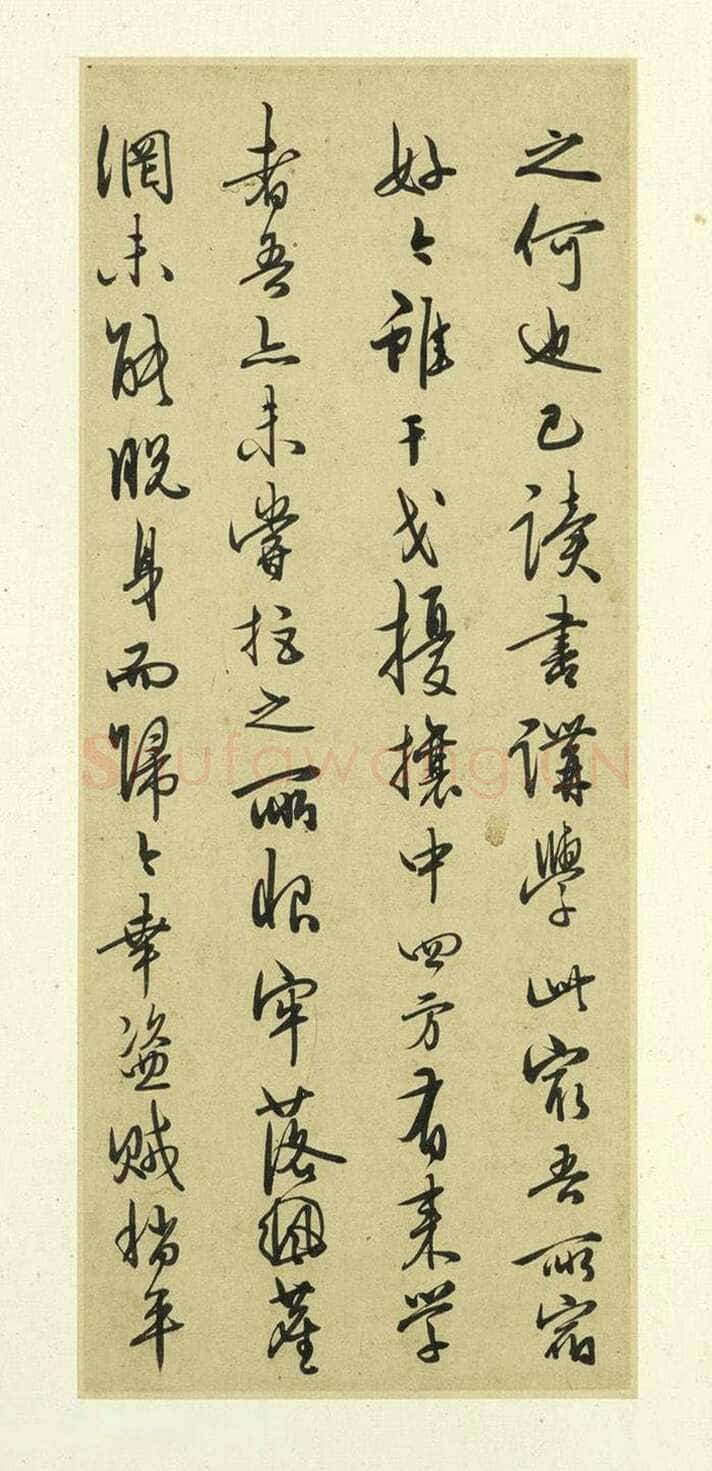 之何也已讀書講學此冣吾所宿
好今雖干戈擾攘中四方有来学
者吾亦未嘗拒之所恨牢落塵
網未能脱身而歸今幸盗賊稍平
Shufawang.CN